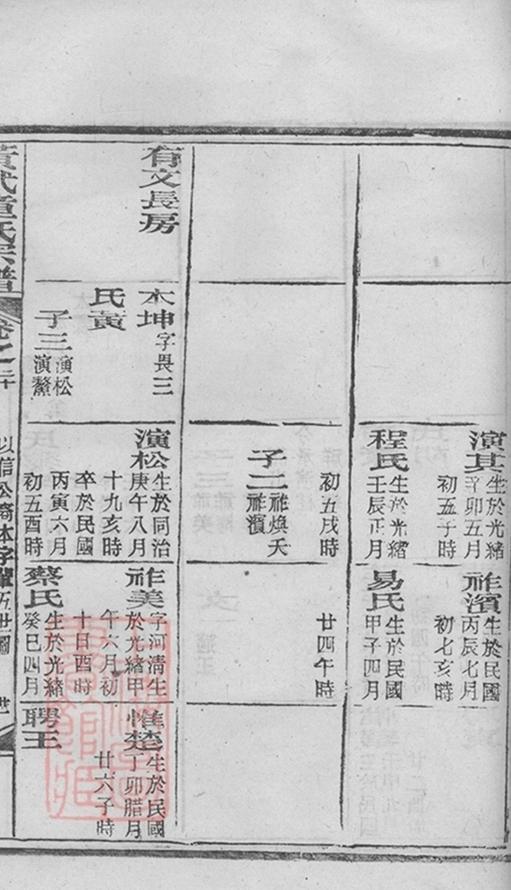 演其
生於光緒
辛卯五月
初五子時
程氏
生於光緒
壬辰正月
初五戌時
子二
祚煥夭
祚濱
祚濱
生於民國
丙辰七月
初七亥時
易氏
生於民國
甲子四月
廿四午時
有文長房
木坤
字畏三
氏黃
子三
演松
演鰲
演松
生於同治
庚午八月
十九亥時
卒於民國
丙寅六月
初五酉時
祚美
字河清生
於光緒甲
午六月初
十日酉時
蔡氏
生於光緒
癸巳四月
惟楚
生於民國
丁卯腊月
廿六子時
聘王
童氏宗譜
卷之二十
以信公裔本字
五世圖